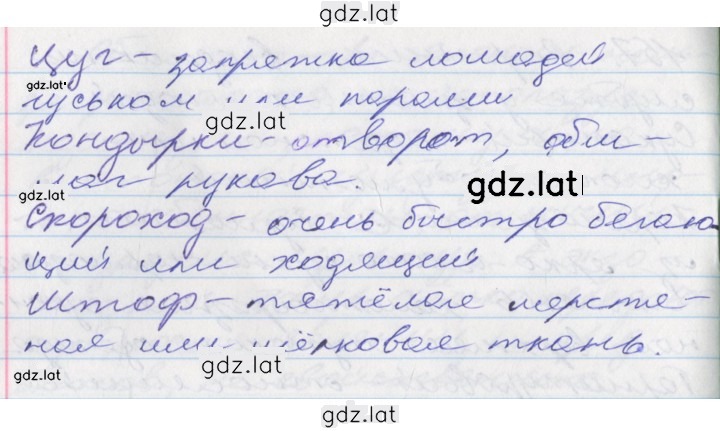 gdz.lat
Цуг – запряжка лошадей
gdz.lat
гуськом или парами
gdz.lat
Кондырки – отворот, обш-
лаг рукава.
gdz.lat
gdz.lat
Скороход – очень быстро бегаю
щий или ходящий
Штоф – тяжёлая шерстя-
ная или шёлковая ткань.
gdz.lat
gdz.lat
gdz.lat